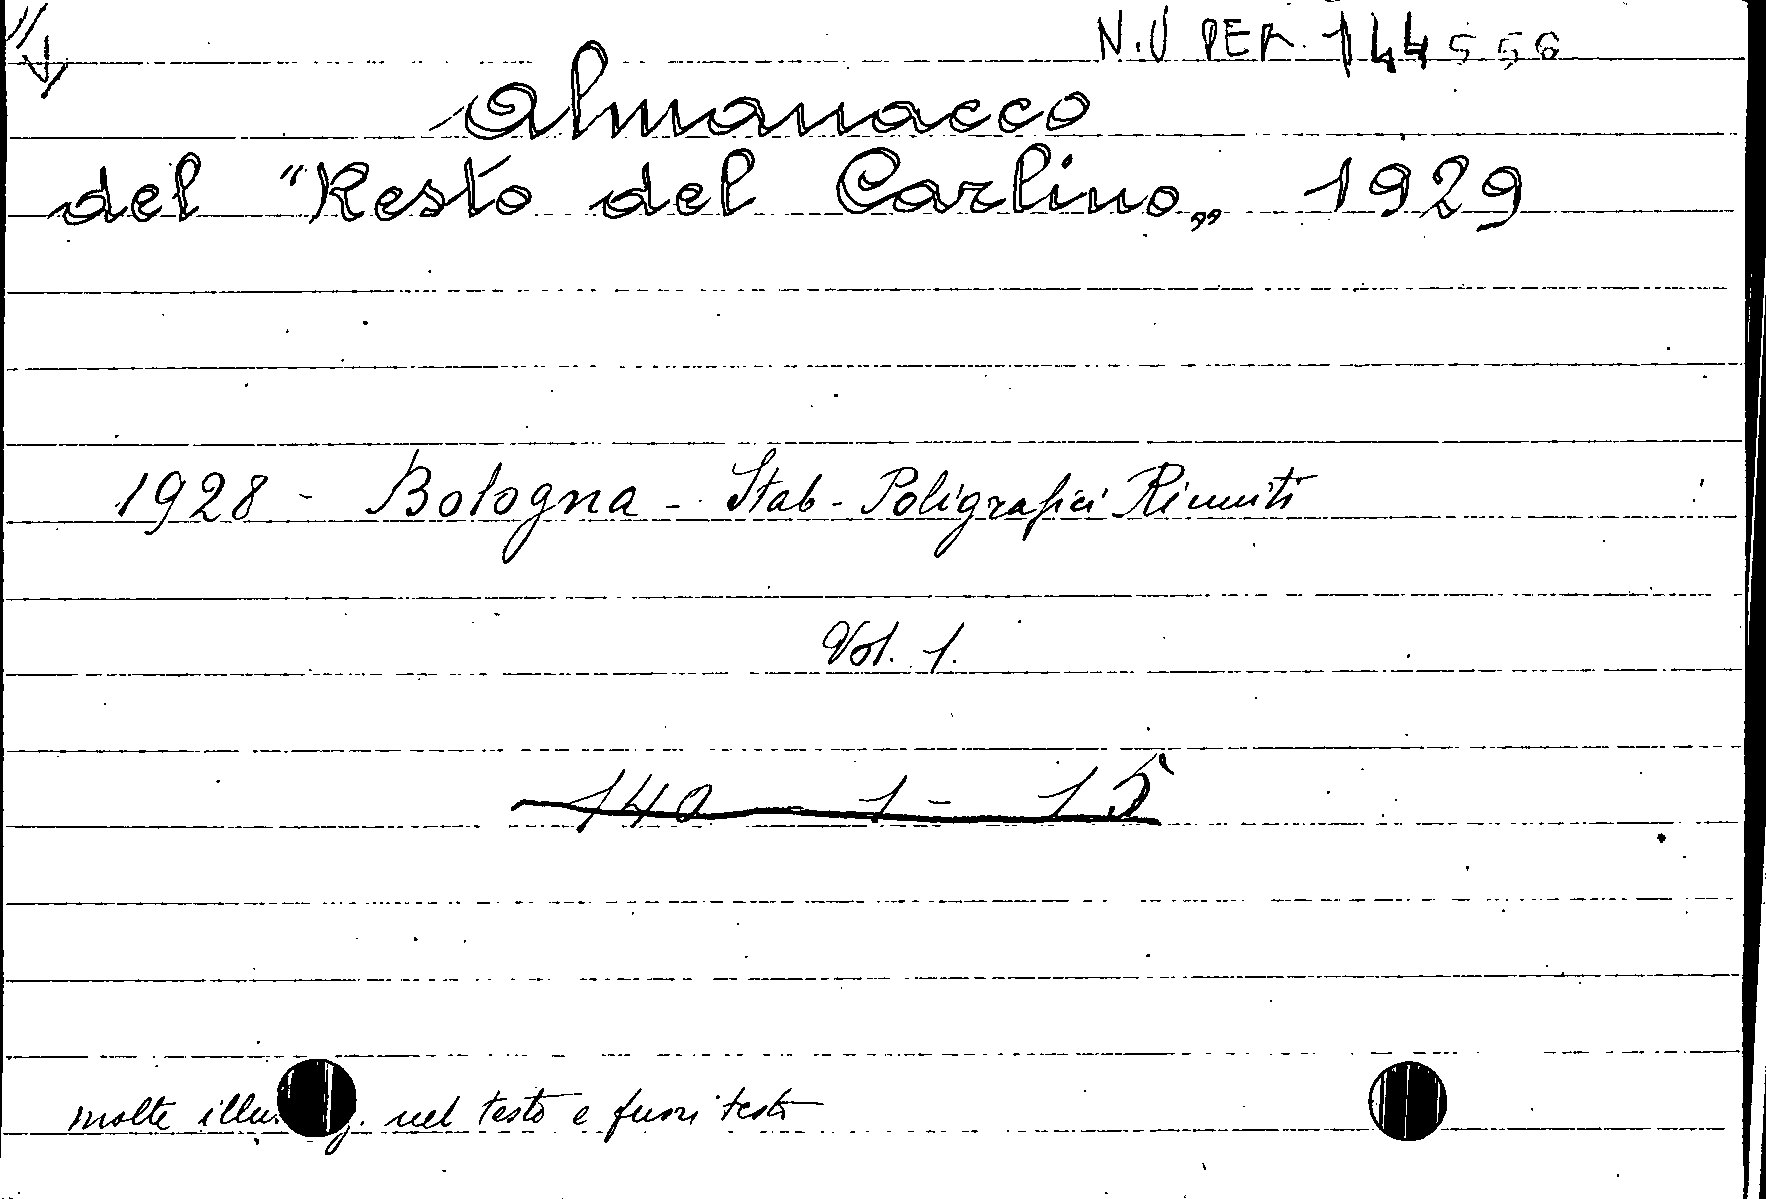 N.U PER. 144556
Almanacco
del "Resto del Carlino„ 1929
1928 - Bologna - Stab - Poligrafici Riuniti
Vol. 1.
140 - 1 - 15
molte nel testo e fuori testo